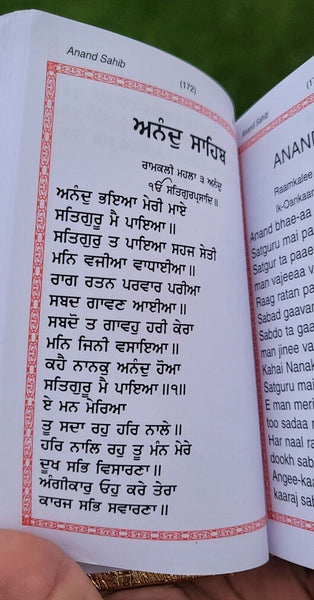 Anand Sahib
(172)
ਅਨੰਦੁ ਸਾਹਿਬ
ਰਾਮਕਲੀ ਮਹਲਾ ੩ ਅਨੰਦੁ
ੴ ਸਤਿਗੁਰਪ੍ਰਸਾਦਿ॥
ਅਨੰਦੁ ਭਇਆ ਮੇਰੀ ਮਾਏ
ਸਤਿਗੁਰੂ ਮੈ ਪਾਇਆ॥
ਸਤਿਗੁਰੁ ਤ ਪਾਇਆ ਸਹਜ ਸੇਤੀ
ਮਨਿ ਵਜੀਆ ਵਾਧਾਈਆ॥
ਰਾਗ ਰਤਨ ਪਰਵਾਰ ਪਰੀਆ
ਸਬਦ ਗਾਵਣ ਆਈਆ॥
ਸਬਦੋ ਤ ਗਾਵਹੁ ਹਰੀ ਕੇਰਾ
ਮਨਿ ਜਿਨੀ ਵਸਾਇਆ॥
ਕਹੈ ਨਾਨਕੁ ਅਨੰਦੁ ਹੋਆ
ਸਤਿਗੁਰੂ ਮੈ ਪਾਇਆ॥੧॥
ਏ ਮਨ ਮੇਰਿਆ
ਤੂ ਸਦਾ ਰਹੁ ਹਰਿ ਨਾਲੇ॥
ਹਰਿ ਨਾਲਿ ਰਹੁ ਤੂ ਮੰਨ ਮੇਰੇ
ਦੂਖ ਸਭਿ ਵਿਸਾਰਣਾ॥
ਅੰਗੀਕਾਰੁ ਓਹੁ ਕਰੇ ਤੇਰਾ
ਕਾਰਜ ਸਭਿ ਸਵਾਰਣਾ॥
Anand Sahib
ANAND
Raamkalee
Ik-Oankaar
Anand bhae-aa
Satguru mai pa
Satgur ta paae
man vajeeaa v
Raag ratan pa
Sabad gaavan
Sabdo ta gaav
man jinee vas
Kahai Nanak
Satguru mai
E man meri
too sadaa
Har naal ra
dookh sabh
Angee-kaa
kaaraj sab